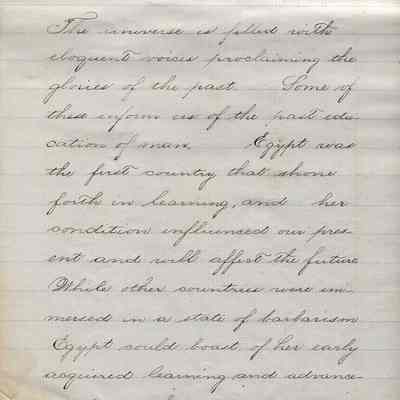 The universe is filled with
eloquent voices proclaiming the
glories of the past. Some of
these inform us of the past edu-
cation of man. Egypt was
the first country that shone
forth in learning, and her
condition influenced our pres-
ent and will affect the future
While other countries were im-
mersed in a state of barbarism
Egypt could boast of her early
acquired learning and advance-